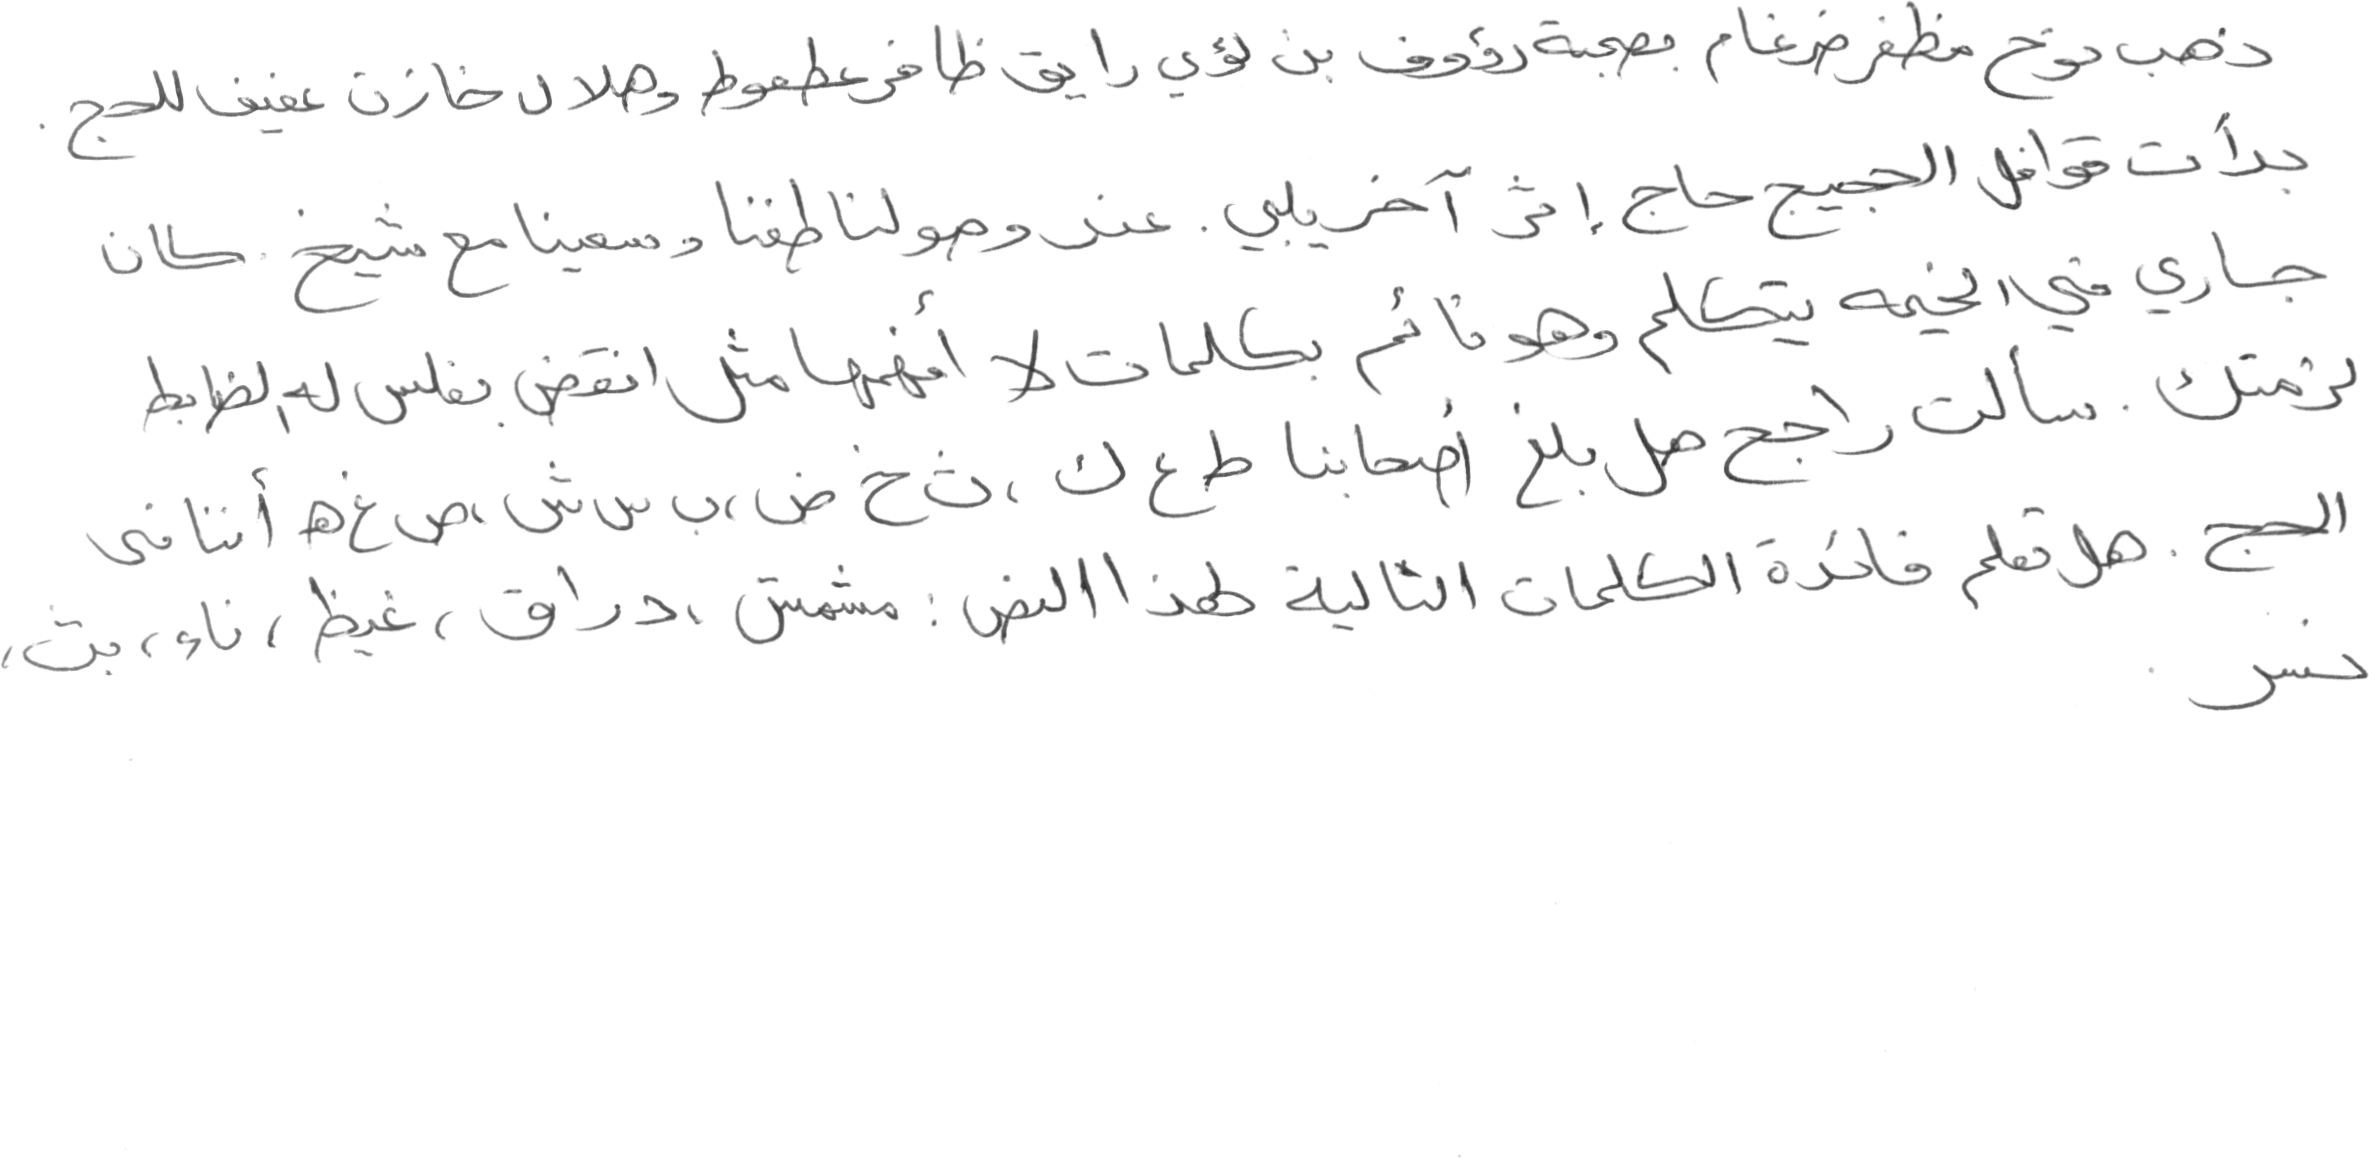 ذهب نوح مظفر ضرغام بصحبة رؤوف بن لؤي رايق ظافر عطعوط وهلال خازن عفيف للحج .
بدأت قوافل الحجيج حاج إثر آخر يلبي . عند وصولنا طفنا وسعينا مع شيخ . كان
جاري في الخيمه يتكلم وهو نائم بكلمات لا أفهمها مثل انقض بفلس له الضابط
لزمتك . سألت راجح هل بلغ أصحابنا ط ع ك ، ث خ ض ، ب س ش ، ص غ ه أننا في
الحج . هل تعلم فائدة الكلمات التالية لهذا النص : مشمش ، دراق ، غيظ ، ناء ، بث ،
خسر .